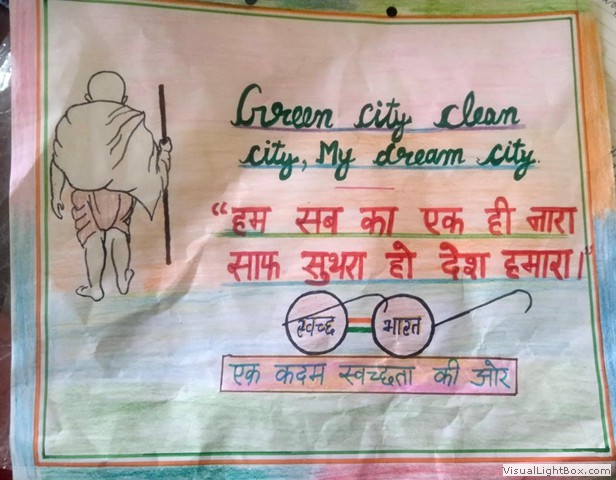 Green city clean
city, My dream city.
“हम सब का एक ही नारा
साफ सुथरा हो देश हमारा।”
स्वच्छ भारत
एक कदम स्वच्छता की ओर
VisualLightBox.com